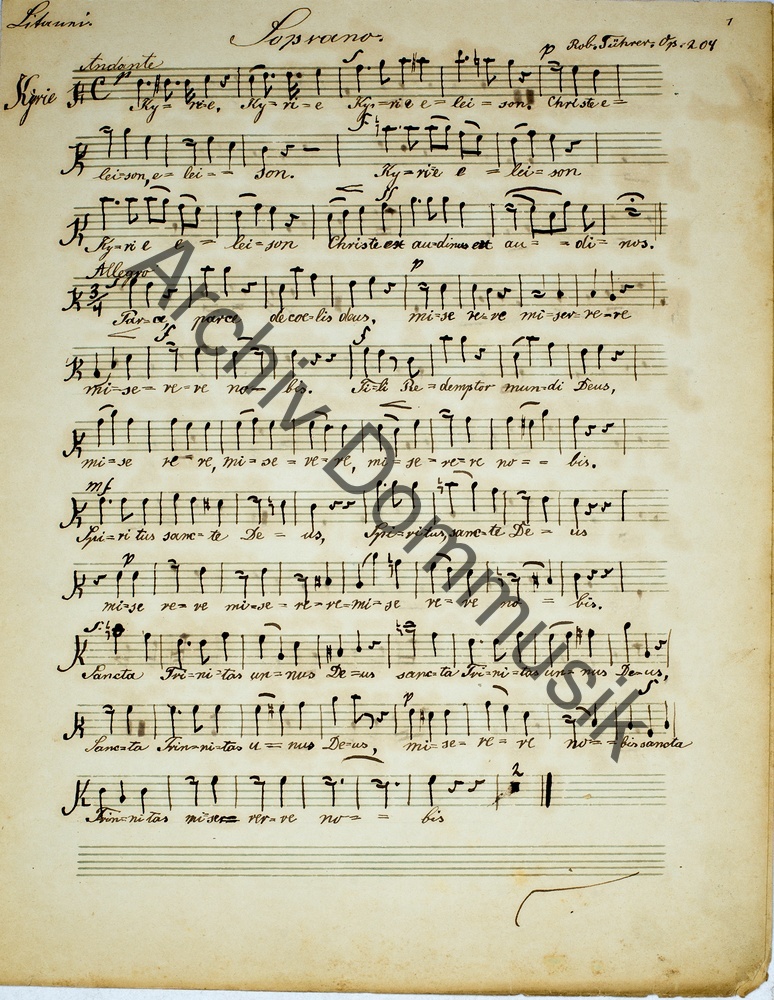 Litauni.
Soprano.
1
Rob. Führer. Op. 204
Andante
p f p
Kyrie
C
Ky= rie. Ky= ri= e Ky=rie e= lei= son. Christe e=
f
lei=son, e= lei= = son. Ky=rie e = lei= son
ff
Ky=ri e e= = lei=son Christe audi nos au= = di= nos.
Allegro
p
3/4
Par=ce, parce de coe=lis deus, mi=se re=re mi=ser=re=re
f f
mi=se= re=re no= bis. Fi=li Re=demptor mun=di Deus,
mi=se re=re, mi=se=re=re, mi=se=re=re no= = bis.
mf
Spi=ri tus sanc=te De= us, Spi=ritus, sanc=te De= us
p
mi=se re=re mi=se=re=re=mi=se re=re no= = bis.
Sancta Tri=ni=tas un=nus De=us sanc=ta Tri=ni=tas un=nus De=us,
p f
Sanc=ta Trin=ni=tas u= nus De=us, mi=se= re= re no= = bis sancta
2
Trin=ni tas mi rer=re no= = bis
Archiv Dommusik